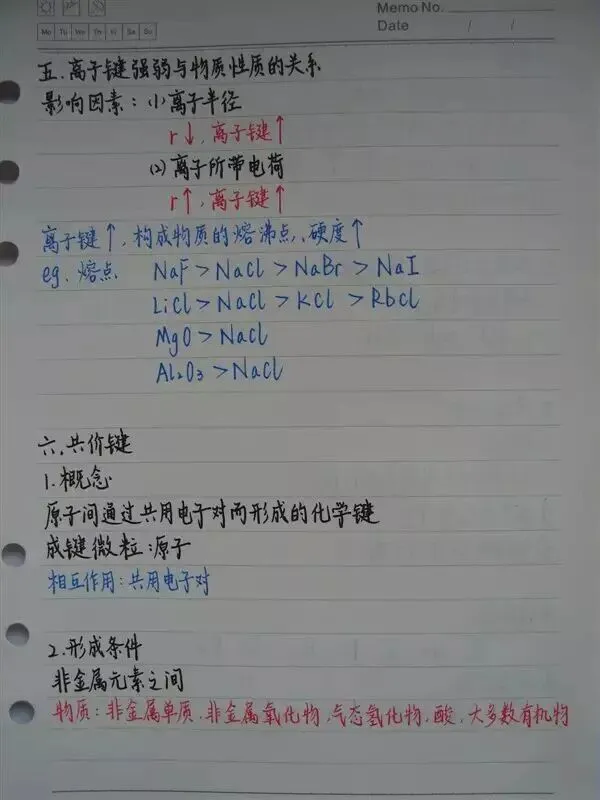 Memo No.
Mo Tu We Th Fr Sa Su
Date / /
五.离子键强弱与物质性质的关系
影响因素:(1)离子半径
r↓,离子键↑
(2)离子所带电荷
r↑,离子键↑
离子键↑,构成物质的熔沸点、硬度↑
eg.熔点 NaF>NaCl>NaBr>NaI
LiCl>NaCl>KCl>RbCl
MgO>NaCl
Al₂O₃>NaCl
六.共价键
1.概念
原子间通过共用电子对而形成的化学键
成键微粒:原子
相互作用:共用电子对
2.形成条件
非金属元素之间
物质:非金属单质.非金属氧化物,气态氢化物,酸,大多数有机物